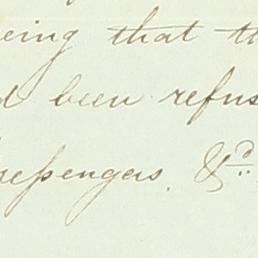 eing that th
d been refus
ssengers. &c.